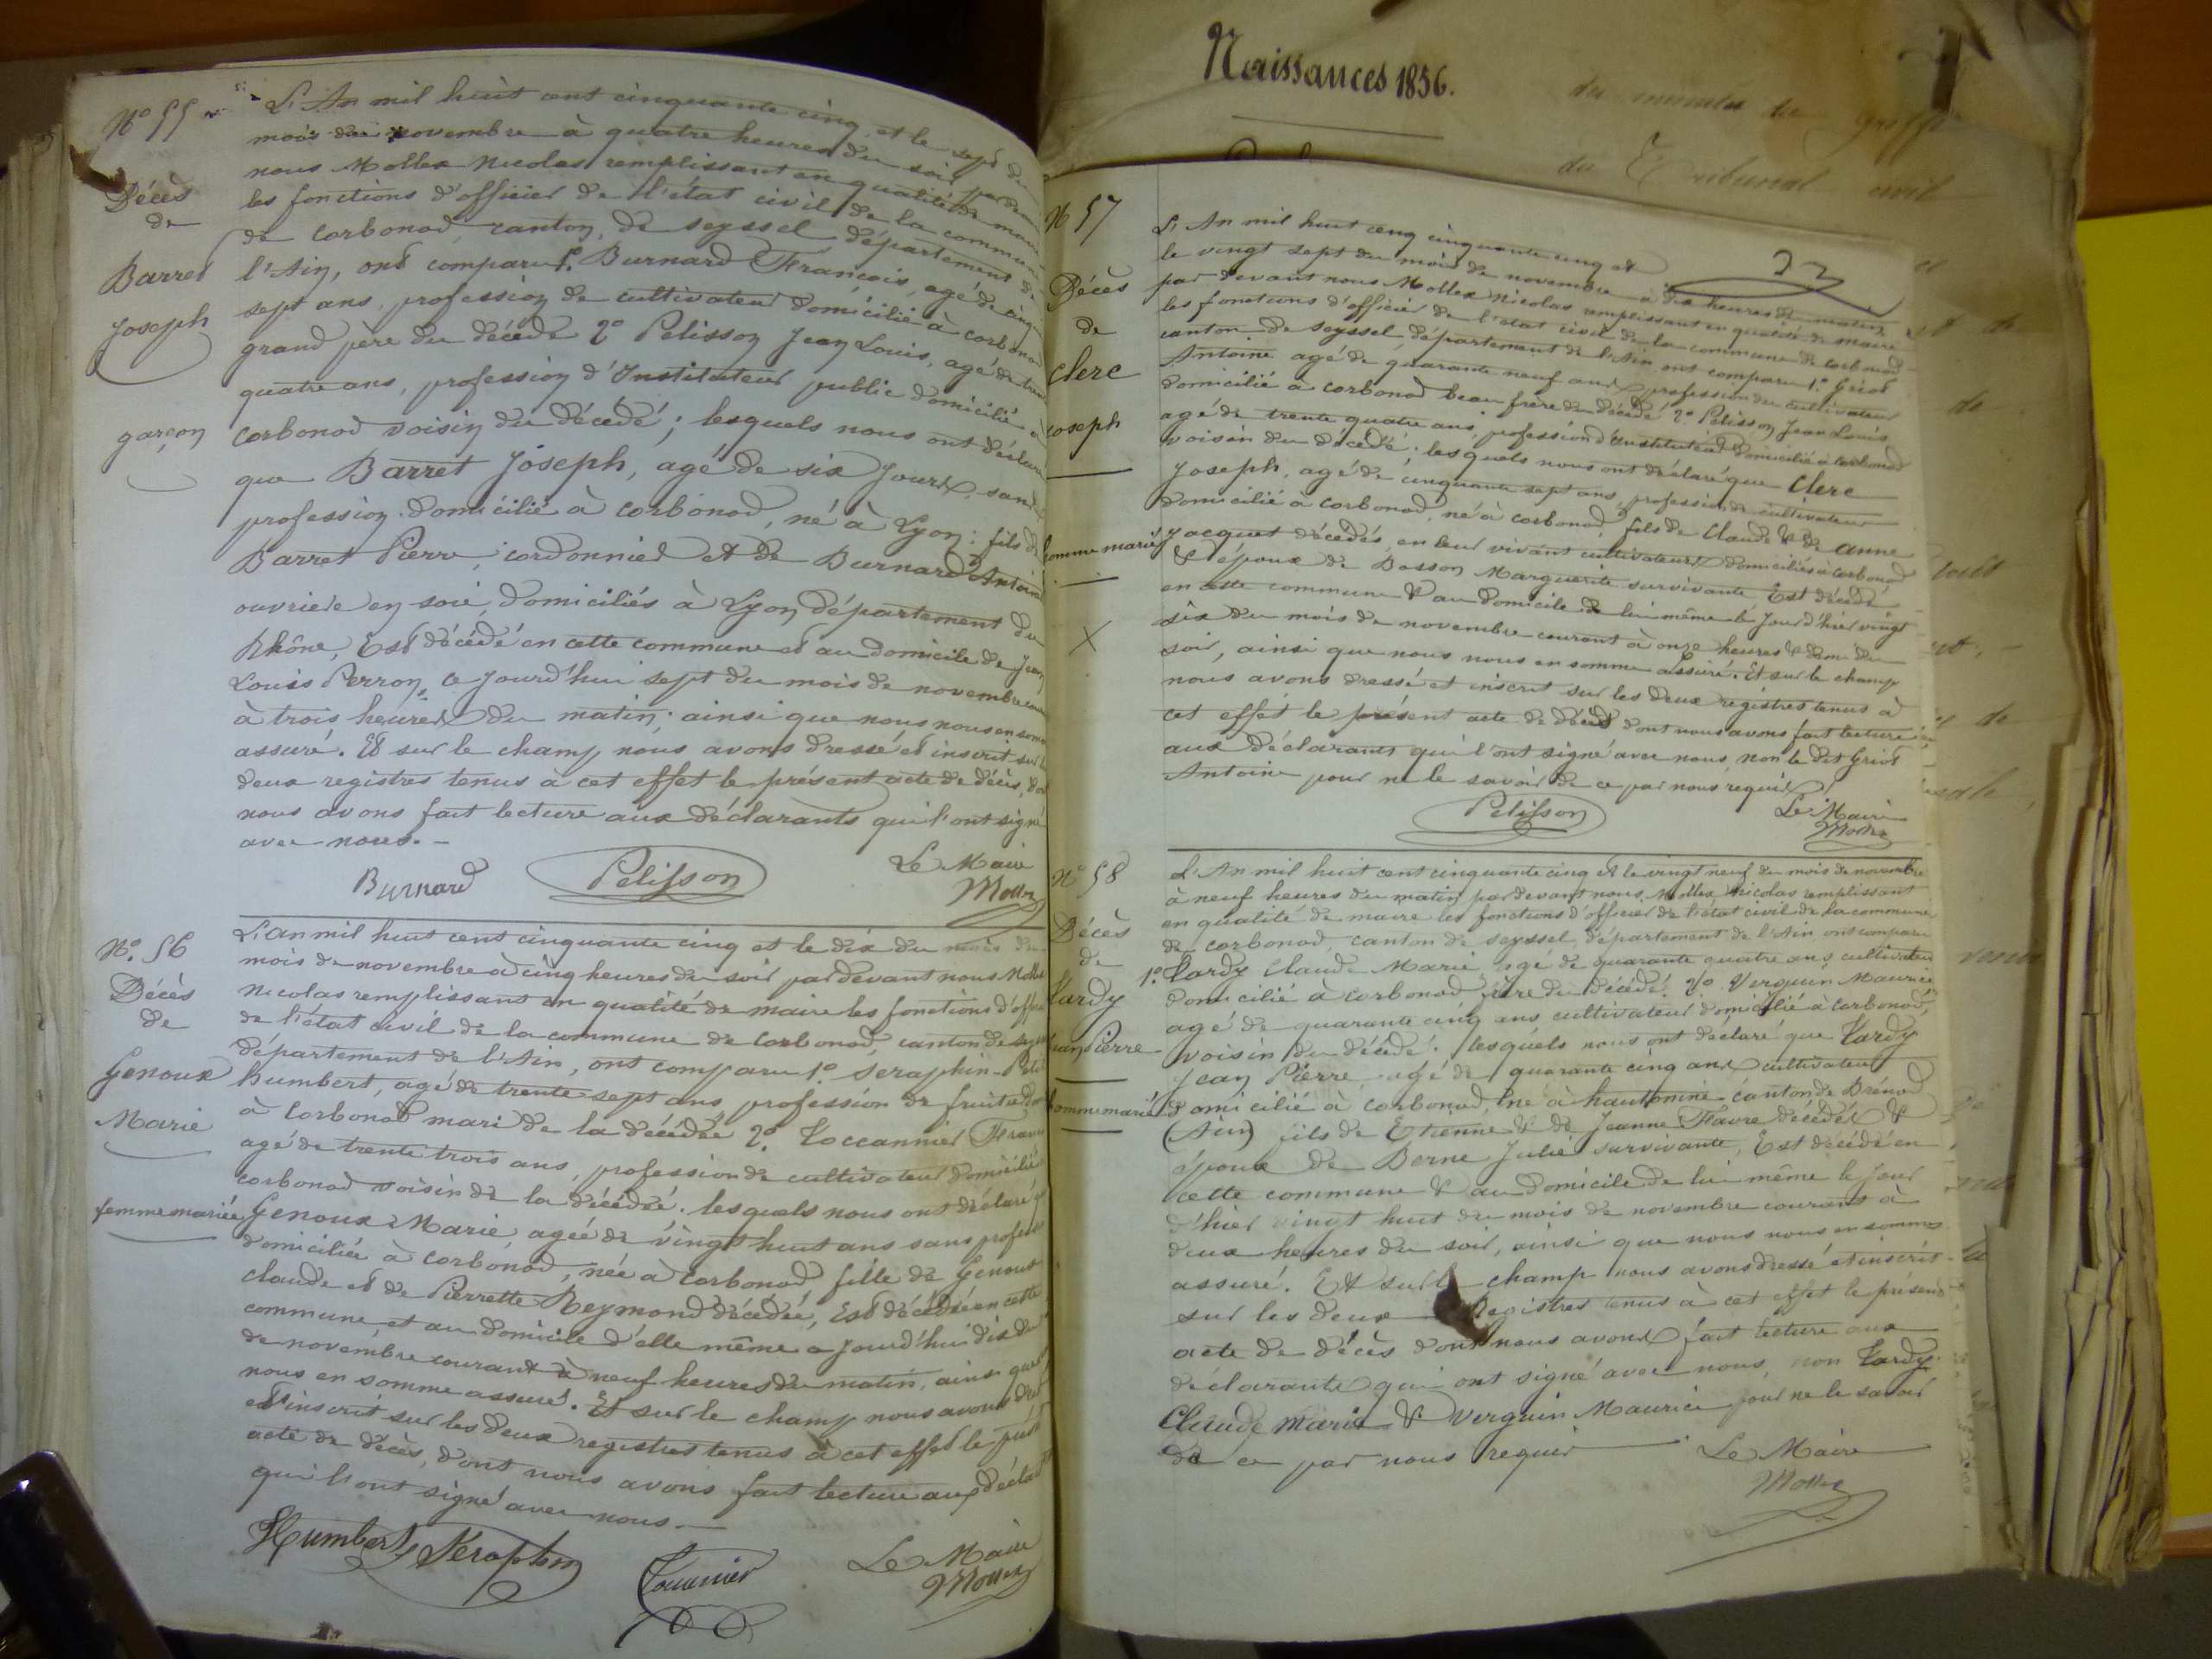 N° 55
Décès
de
Barret
Joseph
garçon
L'An mil huit cent cinquante cinq, et le sept du
mois de novembre à quatre heures du soir par devant
nous Mollex Nicolas remplissant en qualité de maire
les fonctions d'officier de l'état civil de la commune
de corbonod, canton de seyssel, département de
l'Ain, ont comparu 1° Burnard François, agé de cinq
sept ans, profession de cultivateur domicilié à corbonod
grand père du décédé 2° Pelisson Jean Louis, agé de trente
quatre ans, profession d'Instituteur public domicilié à
corbonod voisin du décédé; lesquels nous ont déclaré
que Barret Joseph, agé de six Jours, sans
profession domicilié à corbonod, né à Lyon; fils de
Barret Pierre, cordonnier et de Burnard Antoine
ouvrière en soie, domiciliés à Lyon département du
Rhône, Est décédé en cette commune et au domicile de Jean
Louis Perron, ce jourd'hui sept du mois de novembre
à trois heures du matin; ainsi que nous nous en somme
assuré. Et sur le champ nous avons dressé et inscrit sur
deux registres tenus à cet effet le présent acte de décès,
nous avons fait lecture aux déclarants qui l'ont signé
avec nous. -
Burnard Pelisson Le Maire
Mollex
N°. 56
Décès
de
Genoux
Marie
femme mariée
L'an mil huit cent cinquante cinq et le dix du mois du
mois de novembre à cinq heures du soir par devant nous Mollex
Nicolas remplissant en qualité de maire les fonctions d'officier
de l'état civil de la commune de Corbonod, canton de seyssel
département de l'Ain, ont comparu 1° Seraphin
humbert, agé de trente sept ans, profession de
à Corbonod mari de la décédée 2° Toccannier
agé de trente trois ans, profession de cultivateur domicilié
corbonod voisin de la décédée. lesquels nous ont déclaré
Genoux Marie agée de vingt huit ans sans profession
domiciliée à corbonod, née à Corbonod fille de Genoux
claude et de Pierrette Reymond décédée, Est décédée en cette
commune et au domicile d'elle même ce jourd'hui dix du
de novembre courant à neuf heures du matin, ainsi que
nous en somme assuré. Et sur le champ nous avons
et inscrit sur les deux registres tenus à cet effet le
acte de décès, dont nous avons fait lecture aux
qui l'ont signé avec nous. —
Humbert Séraphin Le Maire
Mollex
Naissances 1856.
du Tribunal civil
N 57
Décès
de
Clerc
Joseph
homme marié
X
23
L'An mil huit cenq cinquante cinq et
le vingt sept du mois de novembre à dix heures du matin
par devant nous Mollex Nicolas remplissant en qualité de maire
les fonctions d'officier de l'état civil de la commune de corbonod
canton de seyssel, département de l'Ain ont comparu 1° Griot
Antoine agé de quarante neuf ans profession de cultivateur
domicilié à corbonod beau frère du décédé 2° Pelisson Jean Louis
agé de trente quatre ans, profession d'instituteur domicilié à Corbonod
voisin du décédé. lesquels nous ont déclaré que Clerc
Joseph, agé de cinquante sept ans profession de cultivateur
domicilié à corbonod, né à corbonod, fils de Claude & de anne
Jacquet décédés en leur vivant cultivateurs domiciliés à corbonod
& époux de Bosson Marguerite survivante Est décédé
en cette commune & au domicile de lui même le Jour d'hier vingt
six du mois de novembre courant à onze heures & demi du
soir, ainsi que nous nous en somme assuré. Et sur le champ
nous avons dressé et inscrit sur les deux régistres tenus à
cet effet le présent acte de décès dont nous avons fait lecture
aux déclarants qui l'ont signé avec nous, non le dit Griot
Antoine pour ne le savoir de ce par nous requis
Pelisson Le Maire
Mollex
N° 58
Décès
de
Tardy
Jean Pierre
homme marié
L'An mil huit cent cinquante cinq et le vingt neuf du mois de novembre
à neuf heures du matin par devant nous Mollex Nicolas remplissant
en qualité de maire les fonctions d'officier de l'état civil de la commune
de corbonod, canton de seyssel, département de l'Ain ont comparu
1° Tardy Claude Marie, agé de quarante quatre ans, cultivateur
domicilié à corbonod frère du décédé. 2° Verguin Maurice
agé de quarante cinq ans cultivateur domicilié à Corbonod,
voisin du décédé. lesquels nous ont déclaré que Tardy
Jean Pierre agé de quarante cinq ans cultivateur
domicilié à corbonod, né à hautomine canton de Brénod
(Ain) fils de Etienne & de Jeanne Favre décédés &
époux de Berne Julie survivante, Est décédé en
cette commune & au domicile de lui même le jour
d'hier vingt huit du mois de novembre courant à
deux heures du soir, ainsi que nous nous en sommes
assuré. Et sur le champ nous avons dressé et inscrit
sur les deux Registres tenus à cet effet le présent
acte de décès dont nous avons fait lecture aux
déclarants qui ont signé avec nous, non Tardy
Claude Marie & Verguin Maurice pour ne le savoir
de ce par nous requis
Le Maire
Mollex